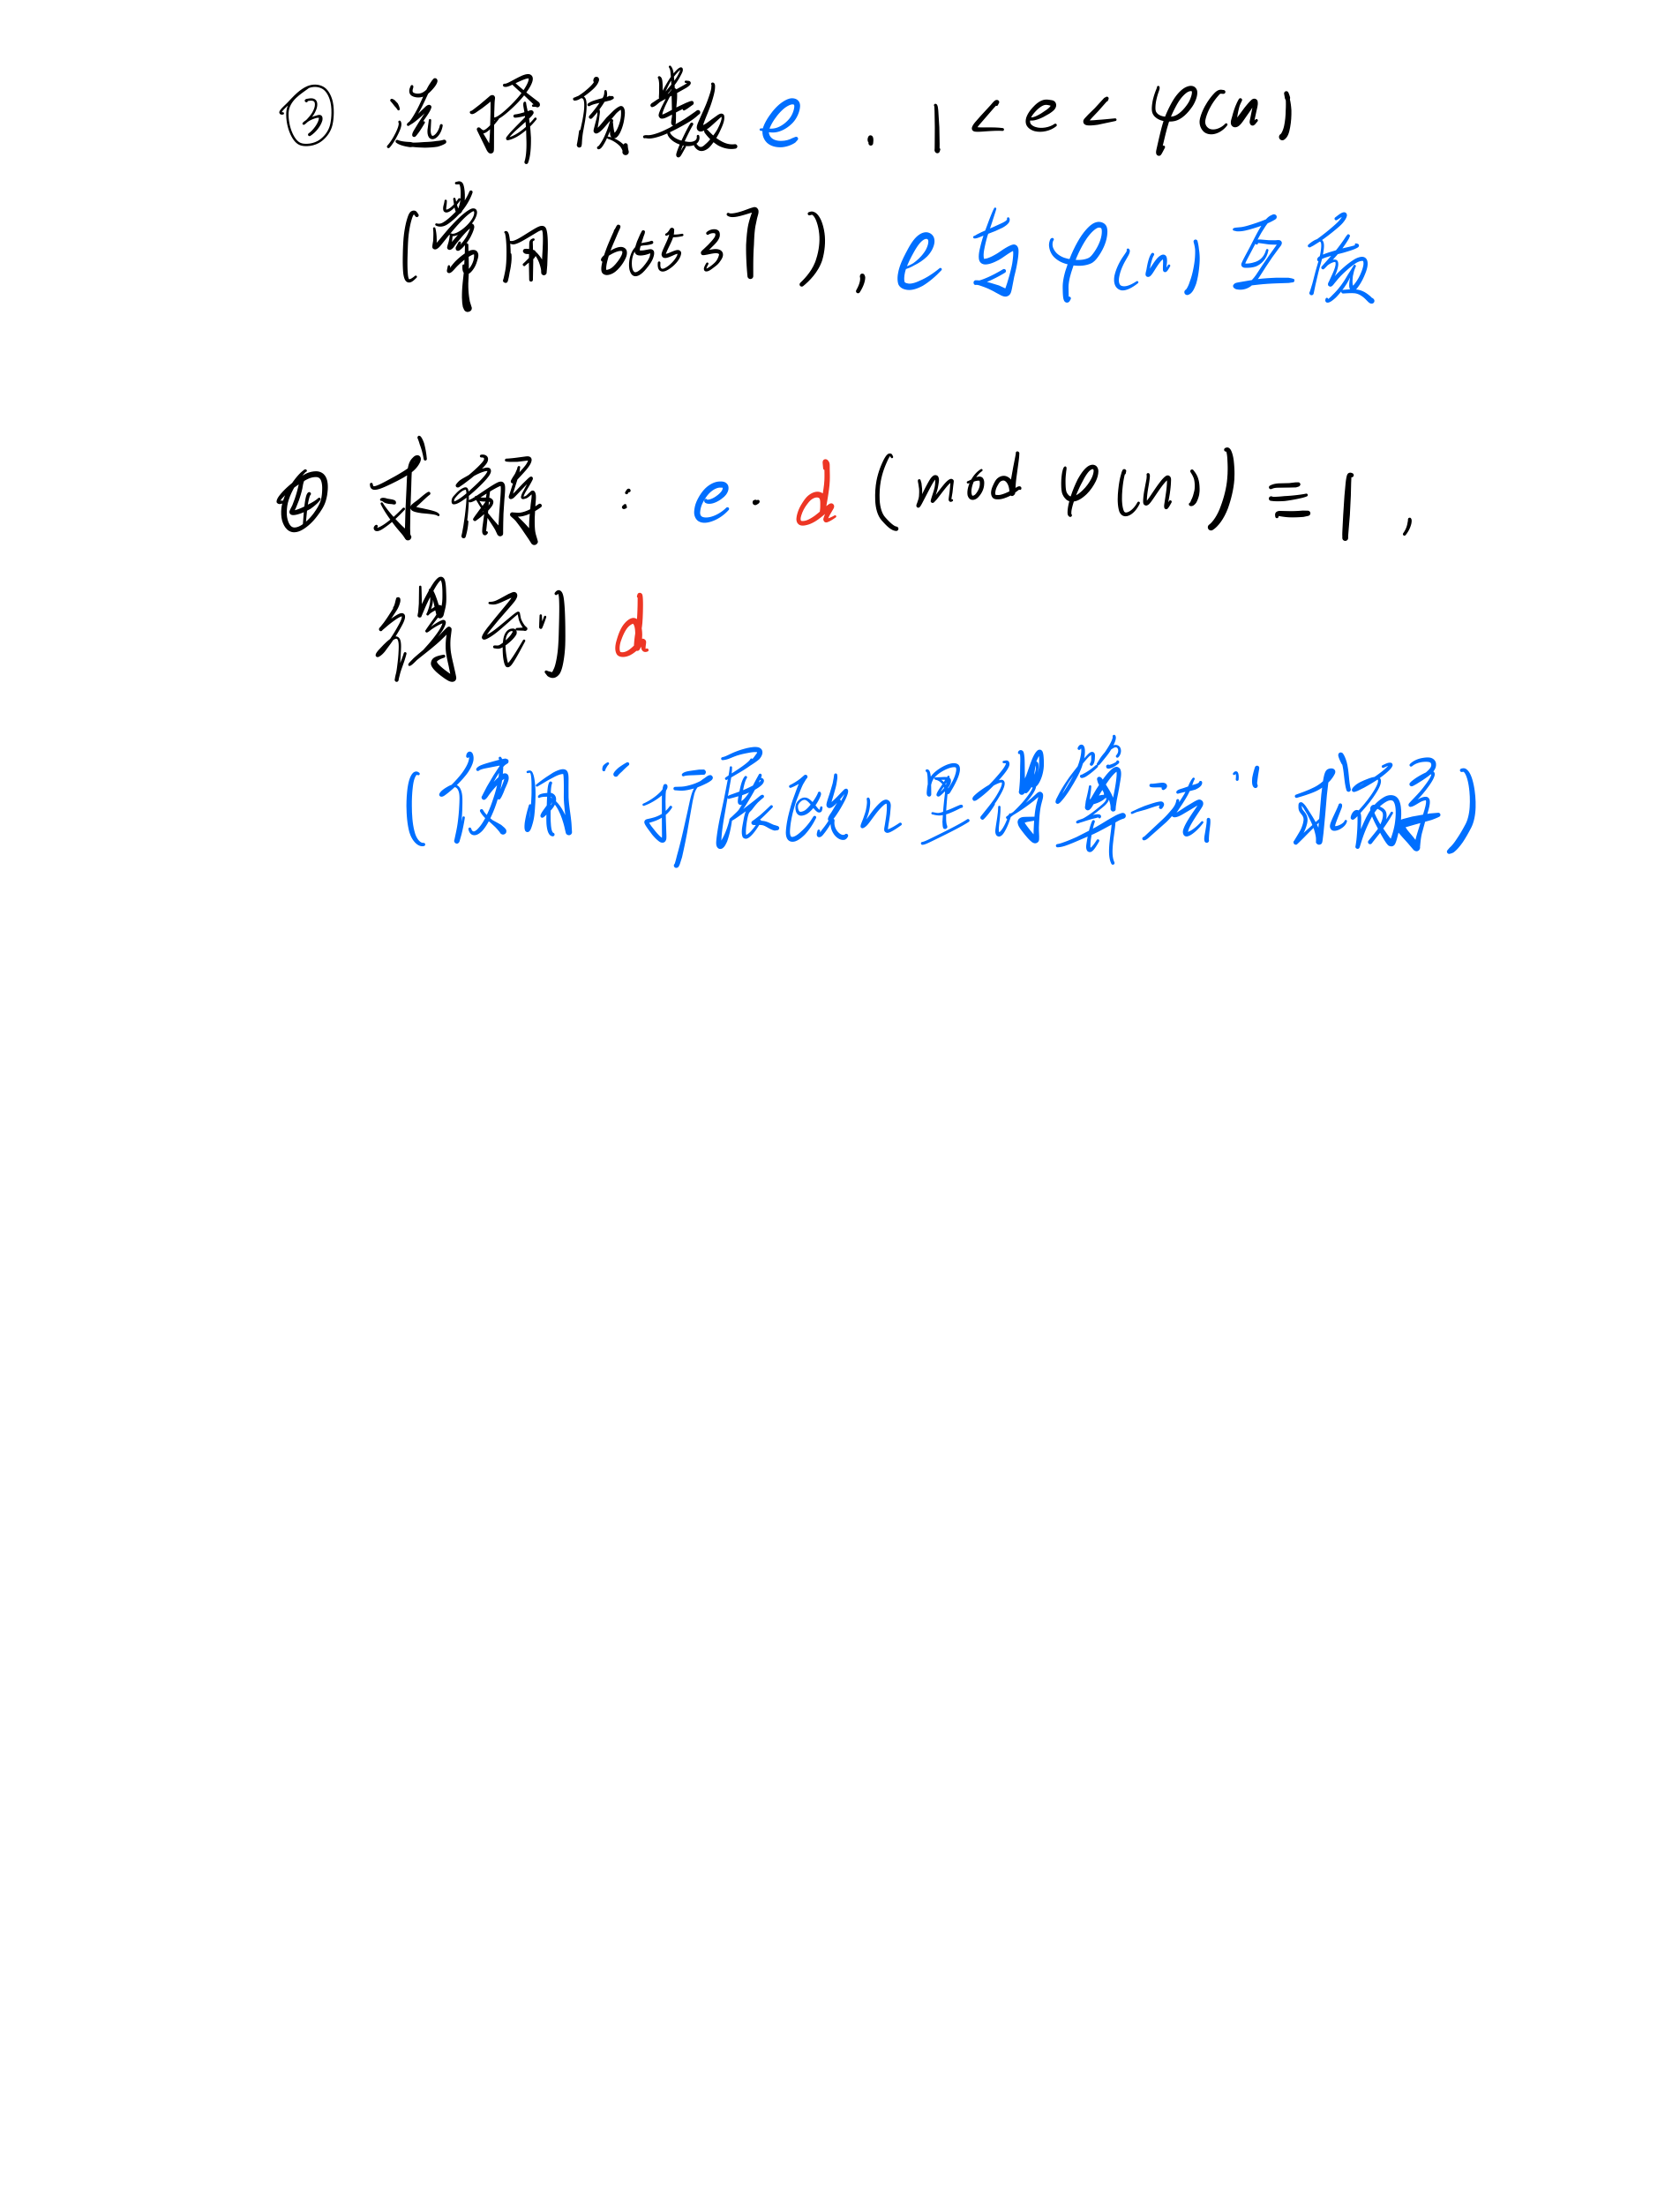 ③ 选择质数 e . 1 < e < φ(n)
(常用 65537), e 与 φ(n) 互质
④ 求解 : e · d (mod φ(n)) = 1 ,
得到 d
(使用“扩展欧几里得算法“ 求解)